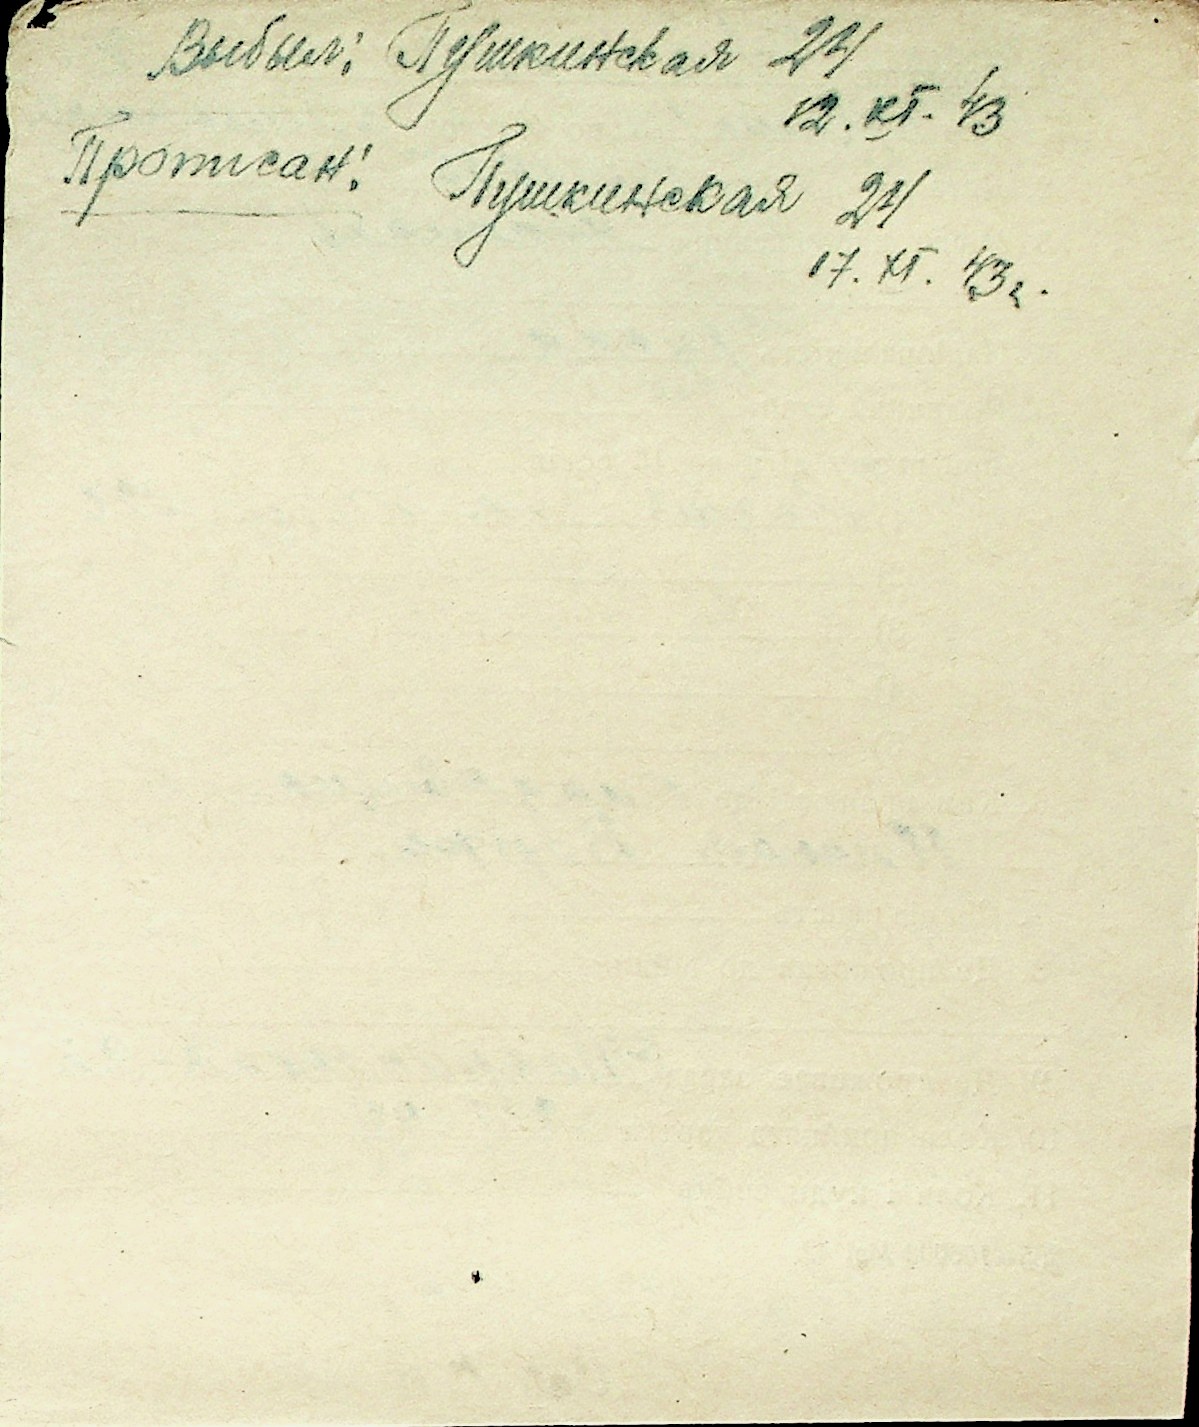 Выбыл: Пушкинская 24
12. XI. 43
Прописан: Пушкинская 24
17. XI. 43 г.